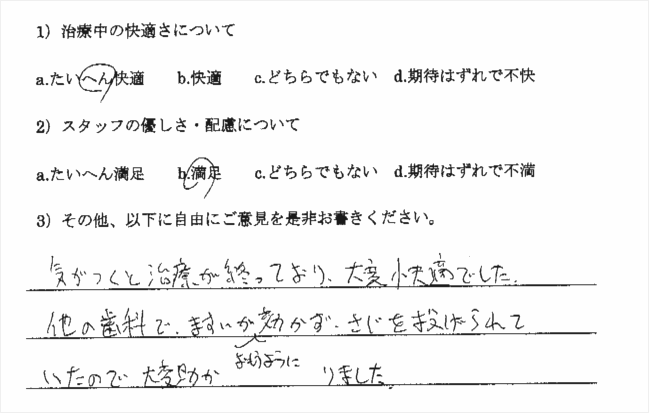 1）治療中の快適さについて
a.たいへん快適　b.快適　c.どちらでもない　d.期待はずれで不快
2）スタッフの優しさ・配慮について
a.たいへん満足　b.満足　c.どちらでもない　d.期待はずれで不満
3）その他、以下に自由にご意見を是非お書きください。
気がつくと治療が終っており、大変快適でした。
他の歯科で、ますいが効かず、さじを投げられて
いたので大変助か　りました